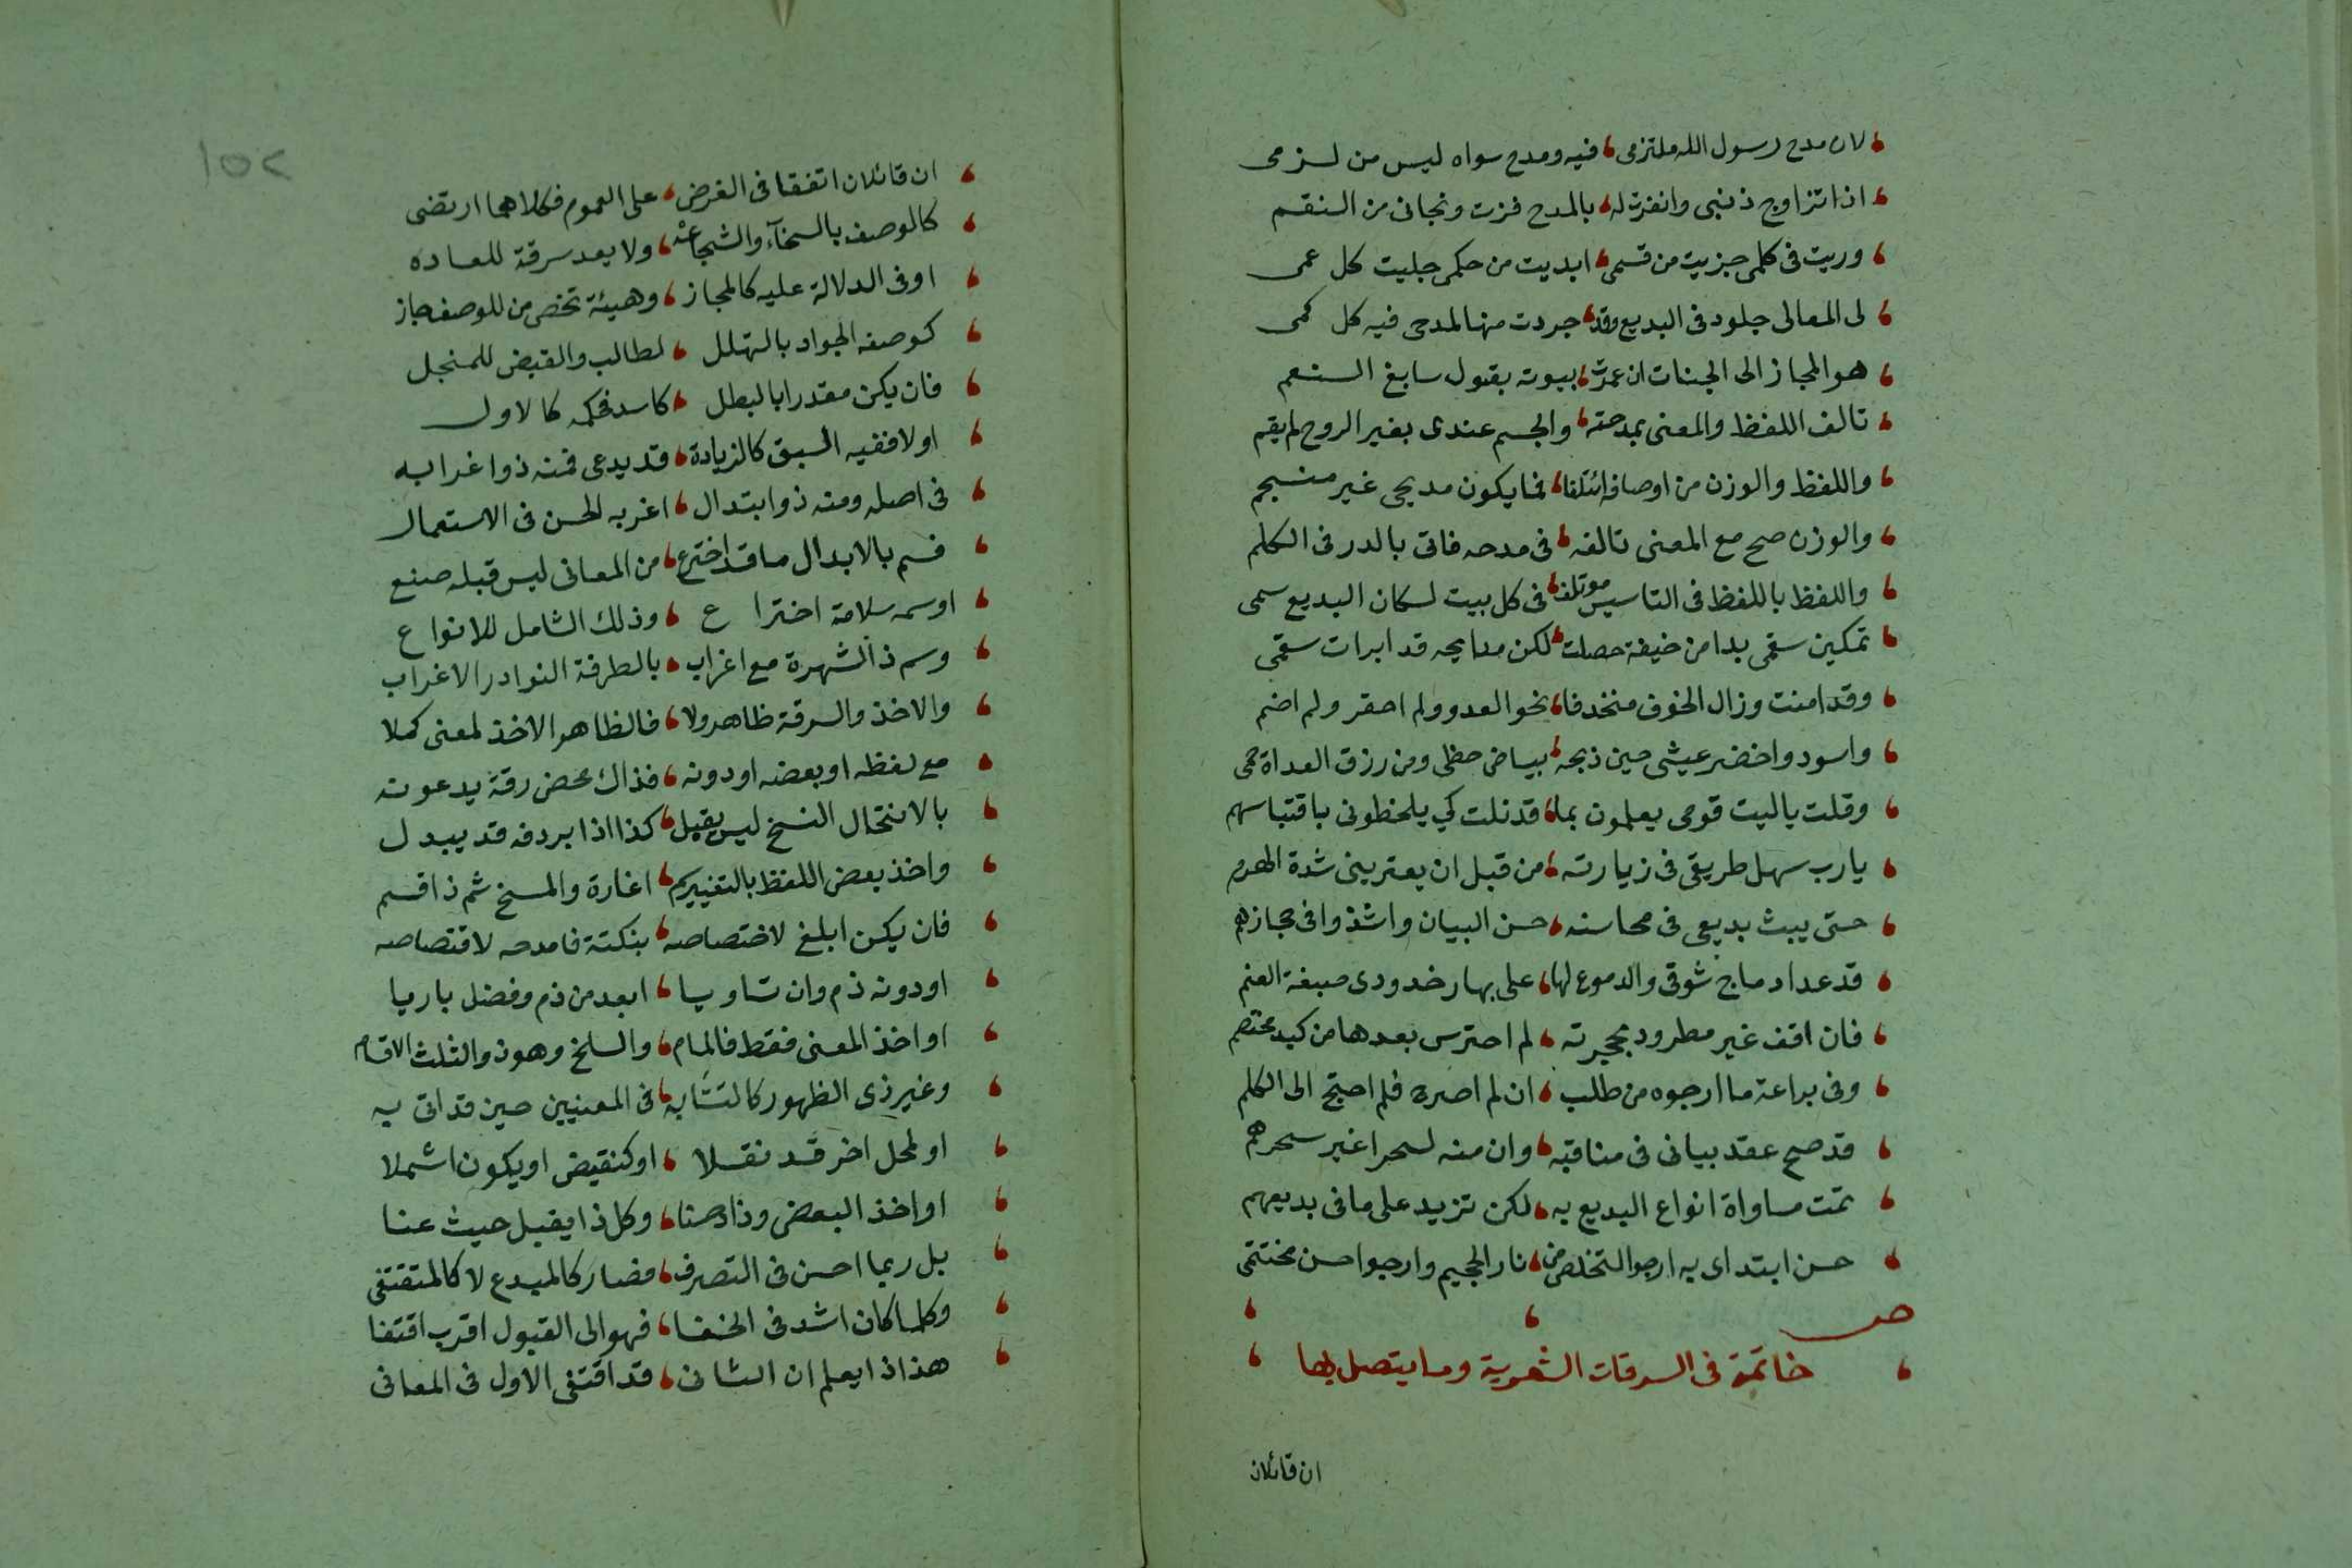 لان مدح رسول الله ملتزمى فيه ومدح سواه ليس من لزمى
اذا تزاوج ذنبى وانفردت له بالمدح فزت ونجانى من النقم
وريت فى كلمى جزيت من قسمى ابديت من حكمى جليت كل عمى
لى المعالى جلود فى البديع وقد جردت منها لمدحى فيه كل كمى
هو المجاز الى الجنات ان عمرت بيوته بقبول سابغ النعم
تالف اللفظ والمعنى بمدحته والجسم عندى بغير الروح لم يقم
واللفظ والوزن من اوصافه ائتلفا فما يكون مديحى غير منسجم
والوزن صح مع المعنى تالفه فى مدحه فاق بالدر فى الكلم
واللفظ باللفظ فى التاسيس موتلف فى كل بيت لسكان البديع سمى
تمكين سقمى بدا من خيفة حصلت لكن مدايحه قد ابرات سقمى
وقد امنت وزال الخوف منخدفا نحو العدو ولم احقر ولم اضم
واسود واخضر عيشى حين ذبجه بياض حظى ومن رزق العداة حمى
وقلت ياليت قومى يعلمون بما قد نلت كي يلحظونى باقتباسهم
يارب سهل طريقى فى زيارته من قبل ان يعترينى شدة الهرم
حتى يبث بديعى فى محاسنه حسن البيان واشذوا فى حجازهم
قد عداد ماج شوقى والدموع لها على بهار خدودى صبغة العنم
فان اقف غير مطرود بحجرته لم احترس بعدها من كيد مختصم
وفى براعة ما ارجوه من طلب ان لم اصرح فلم احتج الى الكلم
قد صح عقد بيانى فى مناقبه وان منه لسحرا غير سحرهم
تمت مساواة انواع البديع به لكن تزيد على ما فى بديعهم
حسن ابتداى به ارجوا التخلص من نار الجحيم وارجوا حسن مختتمى
ص
خاتمة فى السرقات الشعرية وما يتصل بها
ان قائلان
١٥٢
ان قائلان اتفقا فى الغرض على العموم فكلاهما ارتضى
كالوصف بالسخآء والشجاعه ولا يعد سرقة للعاده
اوفى الدلالة عليه كالمجاز وهيئة تخص من للوصف حاز
كوصف الجواد بالتهلل لطالب والقبض للمنجل
فان يكن مقدرا بالبطل كاسد فحكمه كالاول
اولا ففيه السبق كالزيادة قد يدعى فمنه ذوا غرابه
فى اصله ومنه ذوا بتدال اغربه الحسن فى الاستعمال
فسم بالابدال ما قد اخترع من المعانى ليس قبله صنع
اوسمه سلامة اختراع وذلك الشامل للانواع
وسم ذا الشهرة مع اغراب بالطرفة النوادر الاغراب
والاخذ والسرقة ظاهر ولا فالظاهر الاخذ لمعنى كملا
مع لفظه او بعضه او دونه فذاك محض رقة يدعونه
بالانتحال النسخ ليس يقبل كذا اذا بردفه قد يبدل
واخذ بعض اللفظ بالتغييركم اغارة والمسخ ثم ذا قسم
فان يكن ابلغ لاختصاصه بنكتة فامدحه لاقتصاصه
اودونه ذم وان تساويا ابعد من ذم وفضل باريا
او اخذ المعنى فقط فالمام والسلخ وهو ذو الثلث الاقسام
وغير ذى الظهور كالتشابه فى المعنيين حين قد اتى به
او لمحل اخر قد نقلا او كنقيض او يكون اشملا
او اخذ البعض وزاد حسنا وكل ذا يقبل حيث عنا
بل ربما احسن فى التصرف فصار كالمبدع لا كالمقتفى
وكلما كان اشد فى الخفا فهو الى القبول اقرب اقتفا
هذا اذا يعلم ان الثانى قد اقتفى الاول فى المعانى